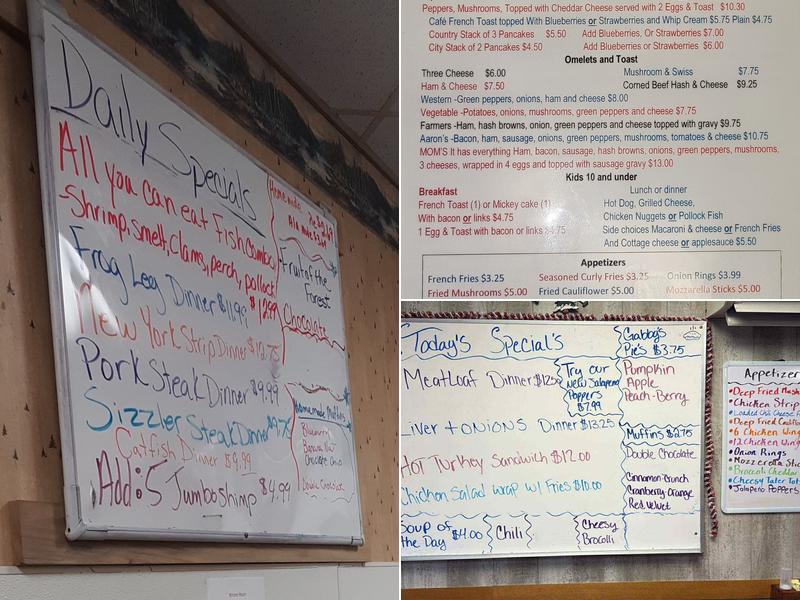 Daily Specials
All you can eat Fish combo
-Shrimp, smelt, clams, perch, pollock
$12.99
Frog Leg Dinner $11.99
New York Strip Dinner $12.75
Pork Steak Dinner $9.99
Sizzler Steak Dinner $9.75
Catfish Dinner $9.99
Add: 5 Jumbo shimp $4.99
Homemade Pie
Fruit of the
Forest
Chocolate
Homemade Muffins
Blueberry
Banana Nut
Chocolate Chip
Double Chocolate
Peppers, Mushrooms, Topped with Cheddar Cheese served with 2 Eggs & Toast $10.30
Café French Toast topped With Blueberries or Strawberries and Whip Cream $5.75 Plain $4.75
Country Stack of 3 Pancakes $5.50 Add Blueberries, Or Strawberries $7.00
City Stack of 2 Pancakes $4.50 Add Blueberries or Strawberries $6.00
Omelets and Toast
Three Cheese $6.00 Mushroom & Swiss $7.75
Ham & Cheese $7.50 Corned Beef Hash & Cheese $9.25
Western -Green peppers, onions, ham and cheese $8.00
Vegetable -Potatoes, onions, mushrooms, green peppers and cheese $7.75
Farmers -Ham, hash browns, onion, green peppers and cheese topped with gravy $9.75
Aaron's -Bacon, ham, sausage, onions, green peppers, mushrooms, tomatoes & cheese $10.75
MOM'S It has everything Ham, bacon, sausage, hash browns, onions, green peppers, mushrooms,
3 cheeses, wrapped in 4 eggs and topped with sausage gravy $13.00
Kids 10 and under
Breakfast
French Toast (1) or Mickey cake (1)
With bacon or links $4.75
1 Egg & Toast with bacon or links $4.75
Lunch or dinner
Hot Dog, Grilled Cheese,
Chicken Nuggets or Pollock Fish
Side choices Macaroni & cheese or French Fries
And Cottage cheese or applesauce $5.50
Appetizers
French Fries $3.25 Seasoned Curly Fries $3.25 Onion Rings $3.99
Fried Mushrooms $5.00 Fried Cauliflower $5.00 Mozzarella Sticks $5.00
Today's Special's
Meatloaf Dinner $12.50
Try our
new Jalapeno
Poppers
$7.99
Liver + onions Dinner $13.25
Hot Turkey Sandwich $12.00
Chicken Salad wrap w/ Fries $10.00
Soup of
the Day $4.00
Chili
Cheesy
Brocolli
Gabby's
Pie's $3.75
Pumpkin
Apple
Peach-Berry
Muffins $2.75
Double Chocolate
Cinnamon Crunch
Cranberry Orange
Red Velvet
Appetizer
•Deep Fried Mush
•Chicken Strip
•Deep Fried Caulif
•6 Chicken Wing
•12 Chicken Wing
•Onion Rings
•Mozzerella Stic
•Broccoli Cheddar
•Cheesy Tater Tot
•Jalapeño Poppers